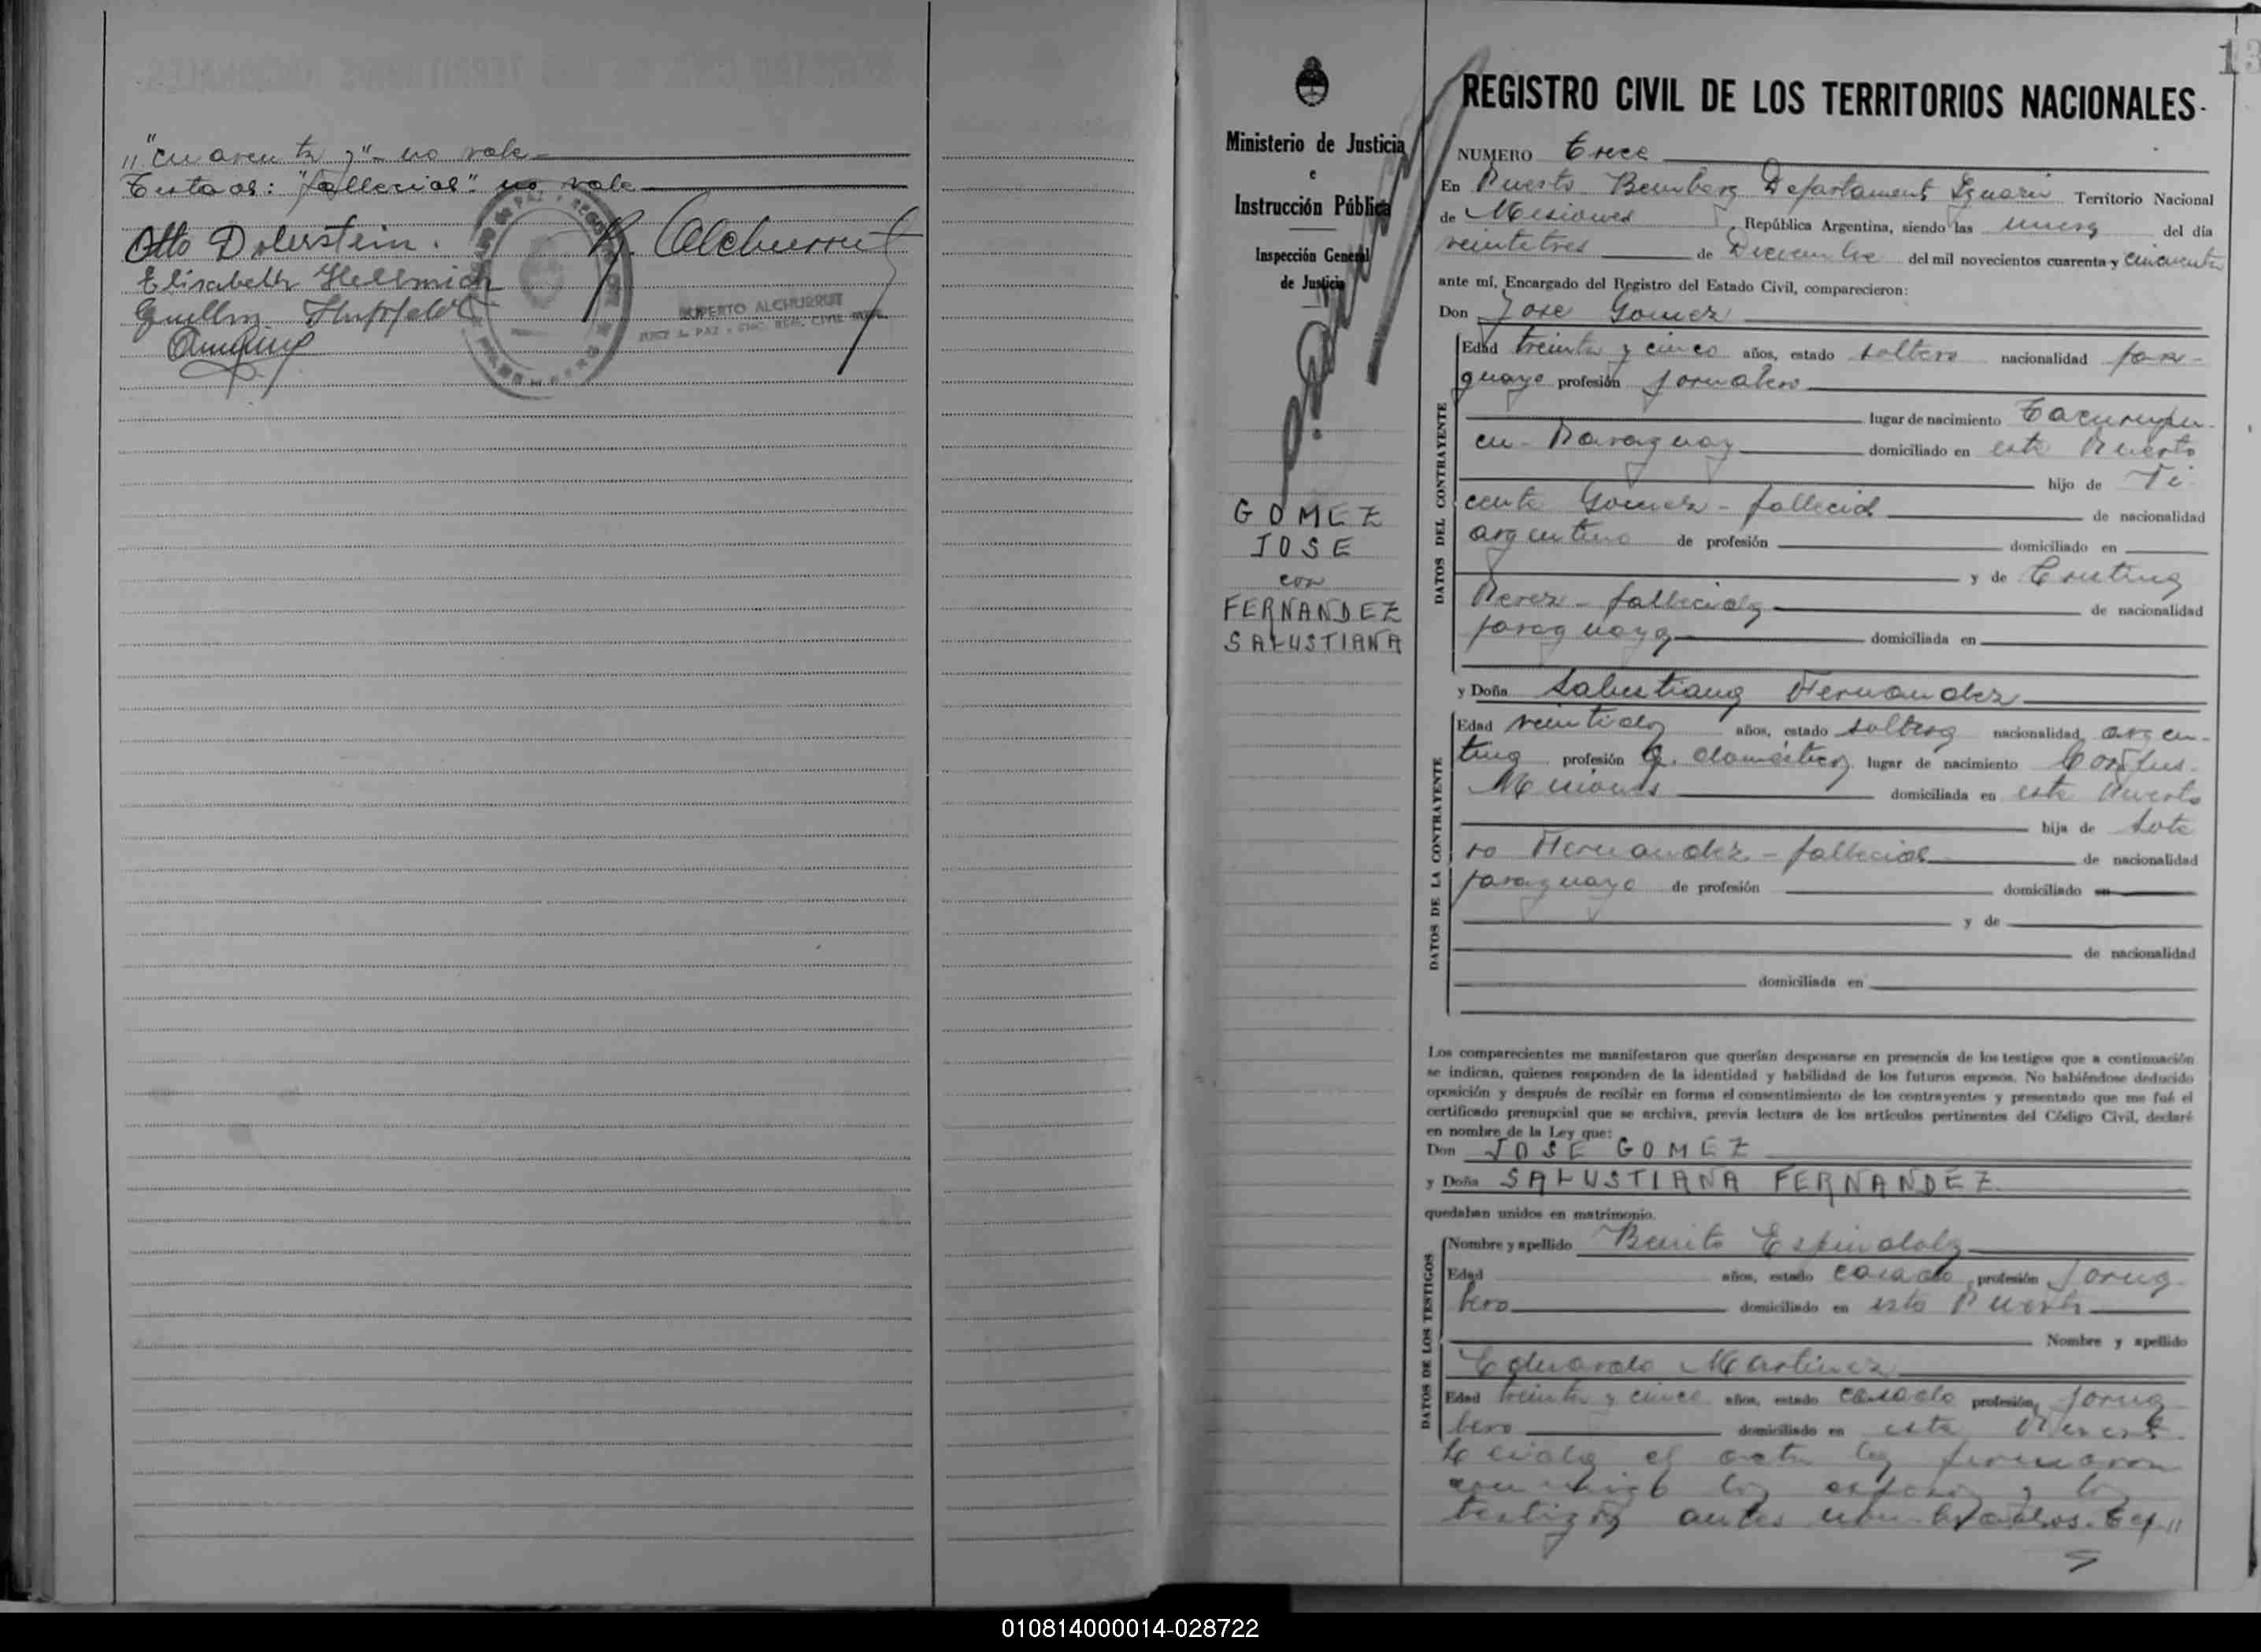 "cuarenta y" - no vale -
Testado: "fallecido" no vale
Otto Dolerstein.
R. Alchurrut
Elisabeth Hellmich
RUPERTO ALCHURRUT
JUEZ de PAZ - ENC. REG. CIVIL
13
REGISTRO CIVIL DE LOS TERRITORIOS NACIONALES
Ministerio de Justicia
e
Instrucción Pública
Inspección General
de Justicia
GOMEZ
JOSE
con
FERNANDEZ
SALUSTIANA
NUMERO Trece
En Puerto Bemberg Departamento Iguazú Territorio Nacional
de Misiones, República Argentina, siendo las nueve del día
veintitres de Diciembre del mil novecientos cuarenta y cincuenta
ante mí, Encargado del Registro del Estado Civil, comparecieron:
Don Jose Gomez
DATOS DEL CONTRAYENTE
Edad treinta y cinco años, estado soltero nacionalidad para-
guayo profesión jornalero
lugar de nacimiento
en - Paraguay domiciliado en este Puerto
hijo de Vi
cente Gomez - fallecido de nacionalidad
argentino de profesión domiciliado en
y de
Perez - fallecida de nacionalidad
paraguaya domiciliada en
y Doña Salustiana Fernandez
DATOS DE LA CONTRAYENTE
Edad veintidos años, estado soltera nacionalidad argen-
tina profesión q. domésticos lugar de nacimiento Corpus-
Misiones domiciliada en este Puerto
hija de Sote
ro Fernandez - fallecido de nacionalidad
paraguayo de profesión domiciliado en
y de
de nacionalidad
domiciliada en
Los comparecientes me manifestaron que querían desposarse en presencia de los testigos que a continuación
se indican, quienes responden de la identidad y habilidad de los futuros esposos. No habiéndose deducido
oposición y después de recibir en forma el consentimiento de los contrayentes y presentado que me fué el
certificado prenupcial que se archiva, previa lectura de los artículos pertinentes del Código Civil, declaré
en nombre de la Ley que:
Don JOSE GOMEZ
y Doña SALUSTIANA FERNANDEZ
quedaban unidos en matrimonio.
DATOS DE LOS TESTIGOS
Nombre y apellido Benito Espindola
Edad años, estado casado profesión Jorna
lero domiciliado en este Puerto
Nombre y apellido
Eduardo Martinez
Edad treinta y cinco años, estado casado profesión Jorna
lero domiciliado en este Puerto.
Leida el acta la firmaron
conmigo los esposos y los
testigos antes nombrados. Tes.//
010814000014-028722